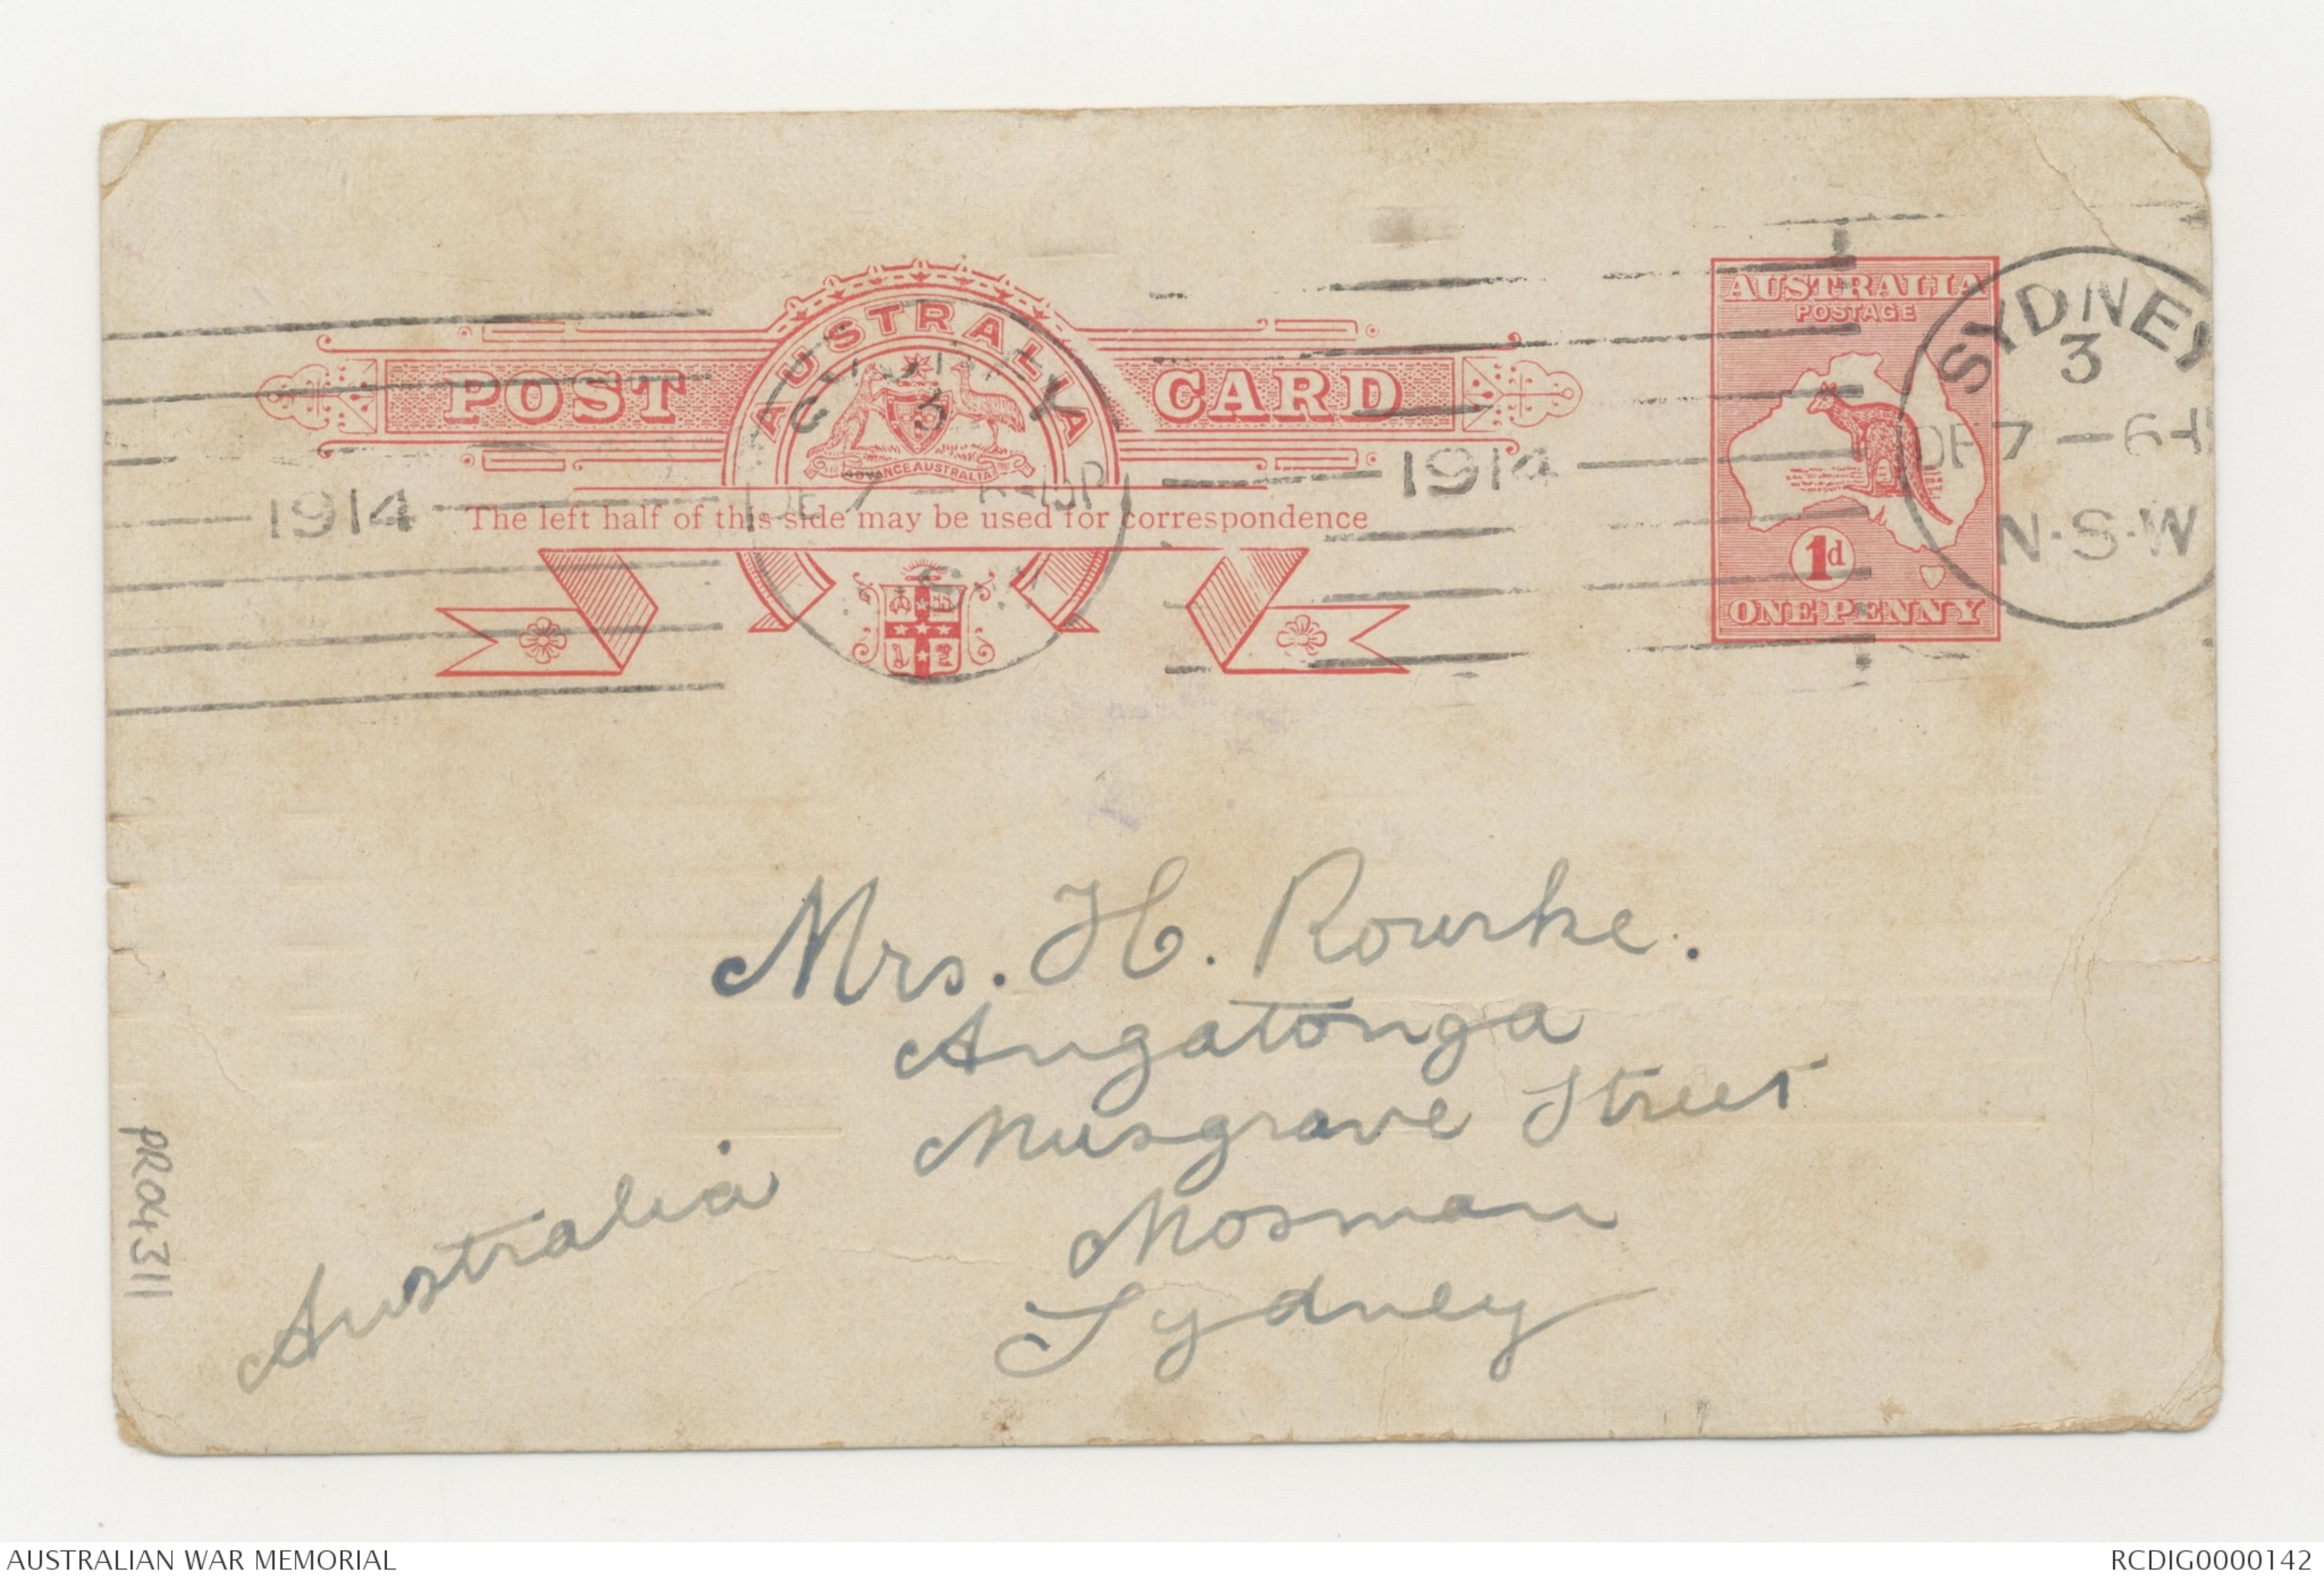 AUSTRALIA
POSTAGE
1d
ONE PENNY
SYDNEY
3
DE 7 — 6-
N·S·W
1914
POST CARD
AUSTRALIA
ADVANCE AUSTRALIA
3
DE 7 — 6-15P
1914
The left half of this side may be used for correspondence
Mrs. H. Rourke.
Angatonga
Musgrave Street
Mosman
Sydney
Australia
PR04311
AUSTRALIAN WAR MEMORIAL
RCDIG0000142